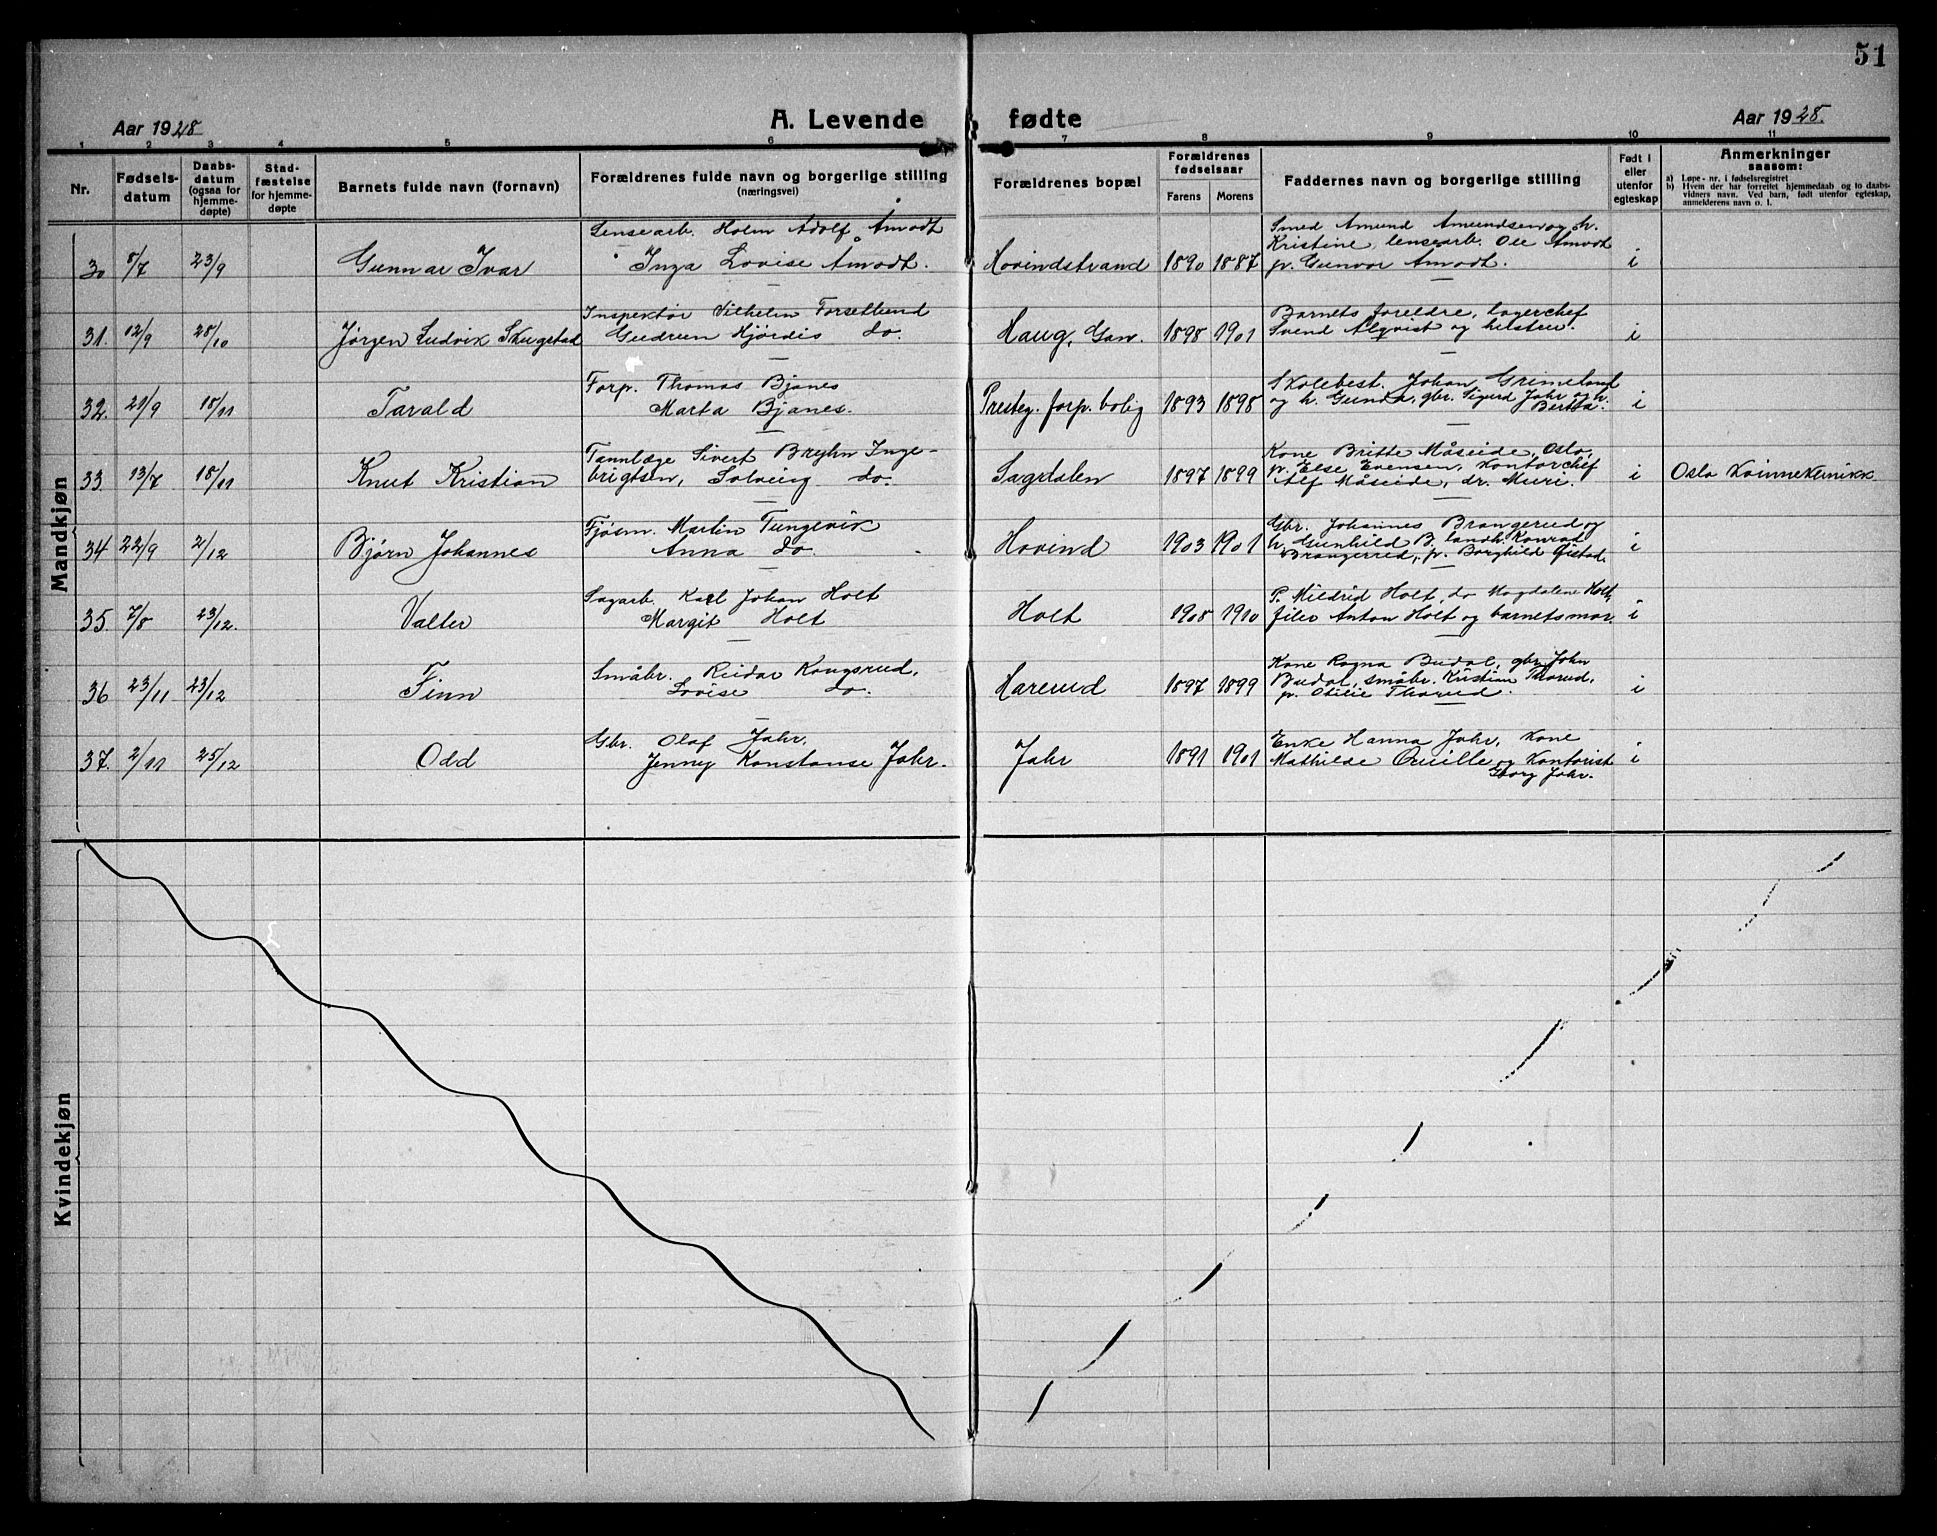 51
Aar 1928
A. Levende fødte
Aar 1928.
1 2 3 4 5 6 7 8 9 10 11
Nr.
Fødselsdatum
Daabsdatum (ogsaa for hjemmedøpte)
Stadfæstelse for hjemmedøpte
Barnets fulde navn (fornavn)
Forældrenes fulde navn og borgerlige stilling (næringsvei)
Forældrenes bopæl
Forældrenes fødselsaar
Farens Morens
Faddernes navn og borgerlige stilling
Født i eller utenfor egteskap
Anmerkninger saasom:
a) Løpe-nr. i fødselsregistret
b) Hvem der har forrettet hjemmedaab og to daabsvidners navn. Ved barn, født utenfor egteskap, anmelderens navn o. l.
Mandkjøn
30 8/7 23/9 Gunnar Ivar
Lensearb. Holm Adolf Åmodt
Inga Lovise Åmodt.
Hovindstrand 1890 1887
Smed Amund Amundsen og h.
Kristine, lensearb. Ole Åmodt
p. Gunvor Åmodt.
i
31. 12/9 28/10 Jørgen Ludvik Skugstad
Inspektør Vilhelm Forsetlund
Gudrun Hjørdis do.
Haug, Gan. 1898 1901
Barnets foreldre, lagerchef
Svend Alqvist og hustru.
i
32. 21/9 18/11 Tarald
Forp. Thomas Bjanes
Marta Bjanes.
Presteg. forp. bolig 1893 1898
Skolebest. Johan Grimeland
og h. Gunda, gbr. Sigurd Jahr og h.
Bertha.
i
33. 13/7 18/11 Knut Kristian
Tannlæge Sivert Bryhn Inge-
brigtsen, Solveig do.
Sagdalen 1897 1899
Kone Britte Måseide, Oslo,
p. Else Evensen, Kontorchef
Alf Måseide, dr. Muri.
i
Oslo Kvinneklinikk.
34 22/9 2/12 Bjørn Johannes
Fjøsm. Martin Tungevik
Anna do.
Hovind 1903 1901
Gbr. Johannes Brangerud og
h. Gunhild B. landh. Konrad
Brangerud, p. Borghild Øistad.
i
35. 7/8 23/12. Valter
Sagarb. Karl Johan Holt
Margit Holt
Holt 1908 1910
P. Mildrid Holt, do Magdalene Holt,
filer Anton Holt og barnets mor.
i
36 23/11 23/12 Finn
Småbr. Reidar Kongsrud,
Lovise do.
Harerud 1897 1899
Kone Ragna Budal, gbr. John
Budal, småbr. Kristian Thorud,
p. Otilie Thorud.
i
37. 2/11 25/12 Odd
Gbr. Olaf Jahr.
Jenny Konstanse Jahr.
Jahr 1891 1901
Enke Hanna Jahr, kone
Mathilde Quille og kontorist
Georg Jahr.
i
Kvindekjøn